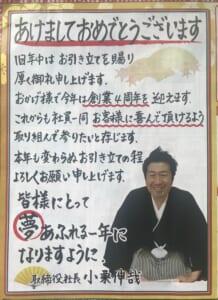 あけましておめでとうございます
旧年中はお引き立てを賜り
厚く御礼申し上げます。
おかげ様で今年は創業4周年を迎えます。
これからも社員一同お客様に喜んで頂けるよう
取り組んで参りたいと存じます。
本年も変わらぬお引き立ての程
よろしくお願い申し上げます。
皆様にとって
夢あふれる一年に
なりますように。
取締役社長 小栗伸哉